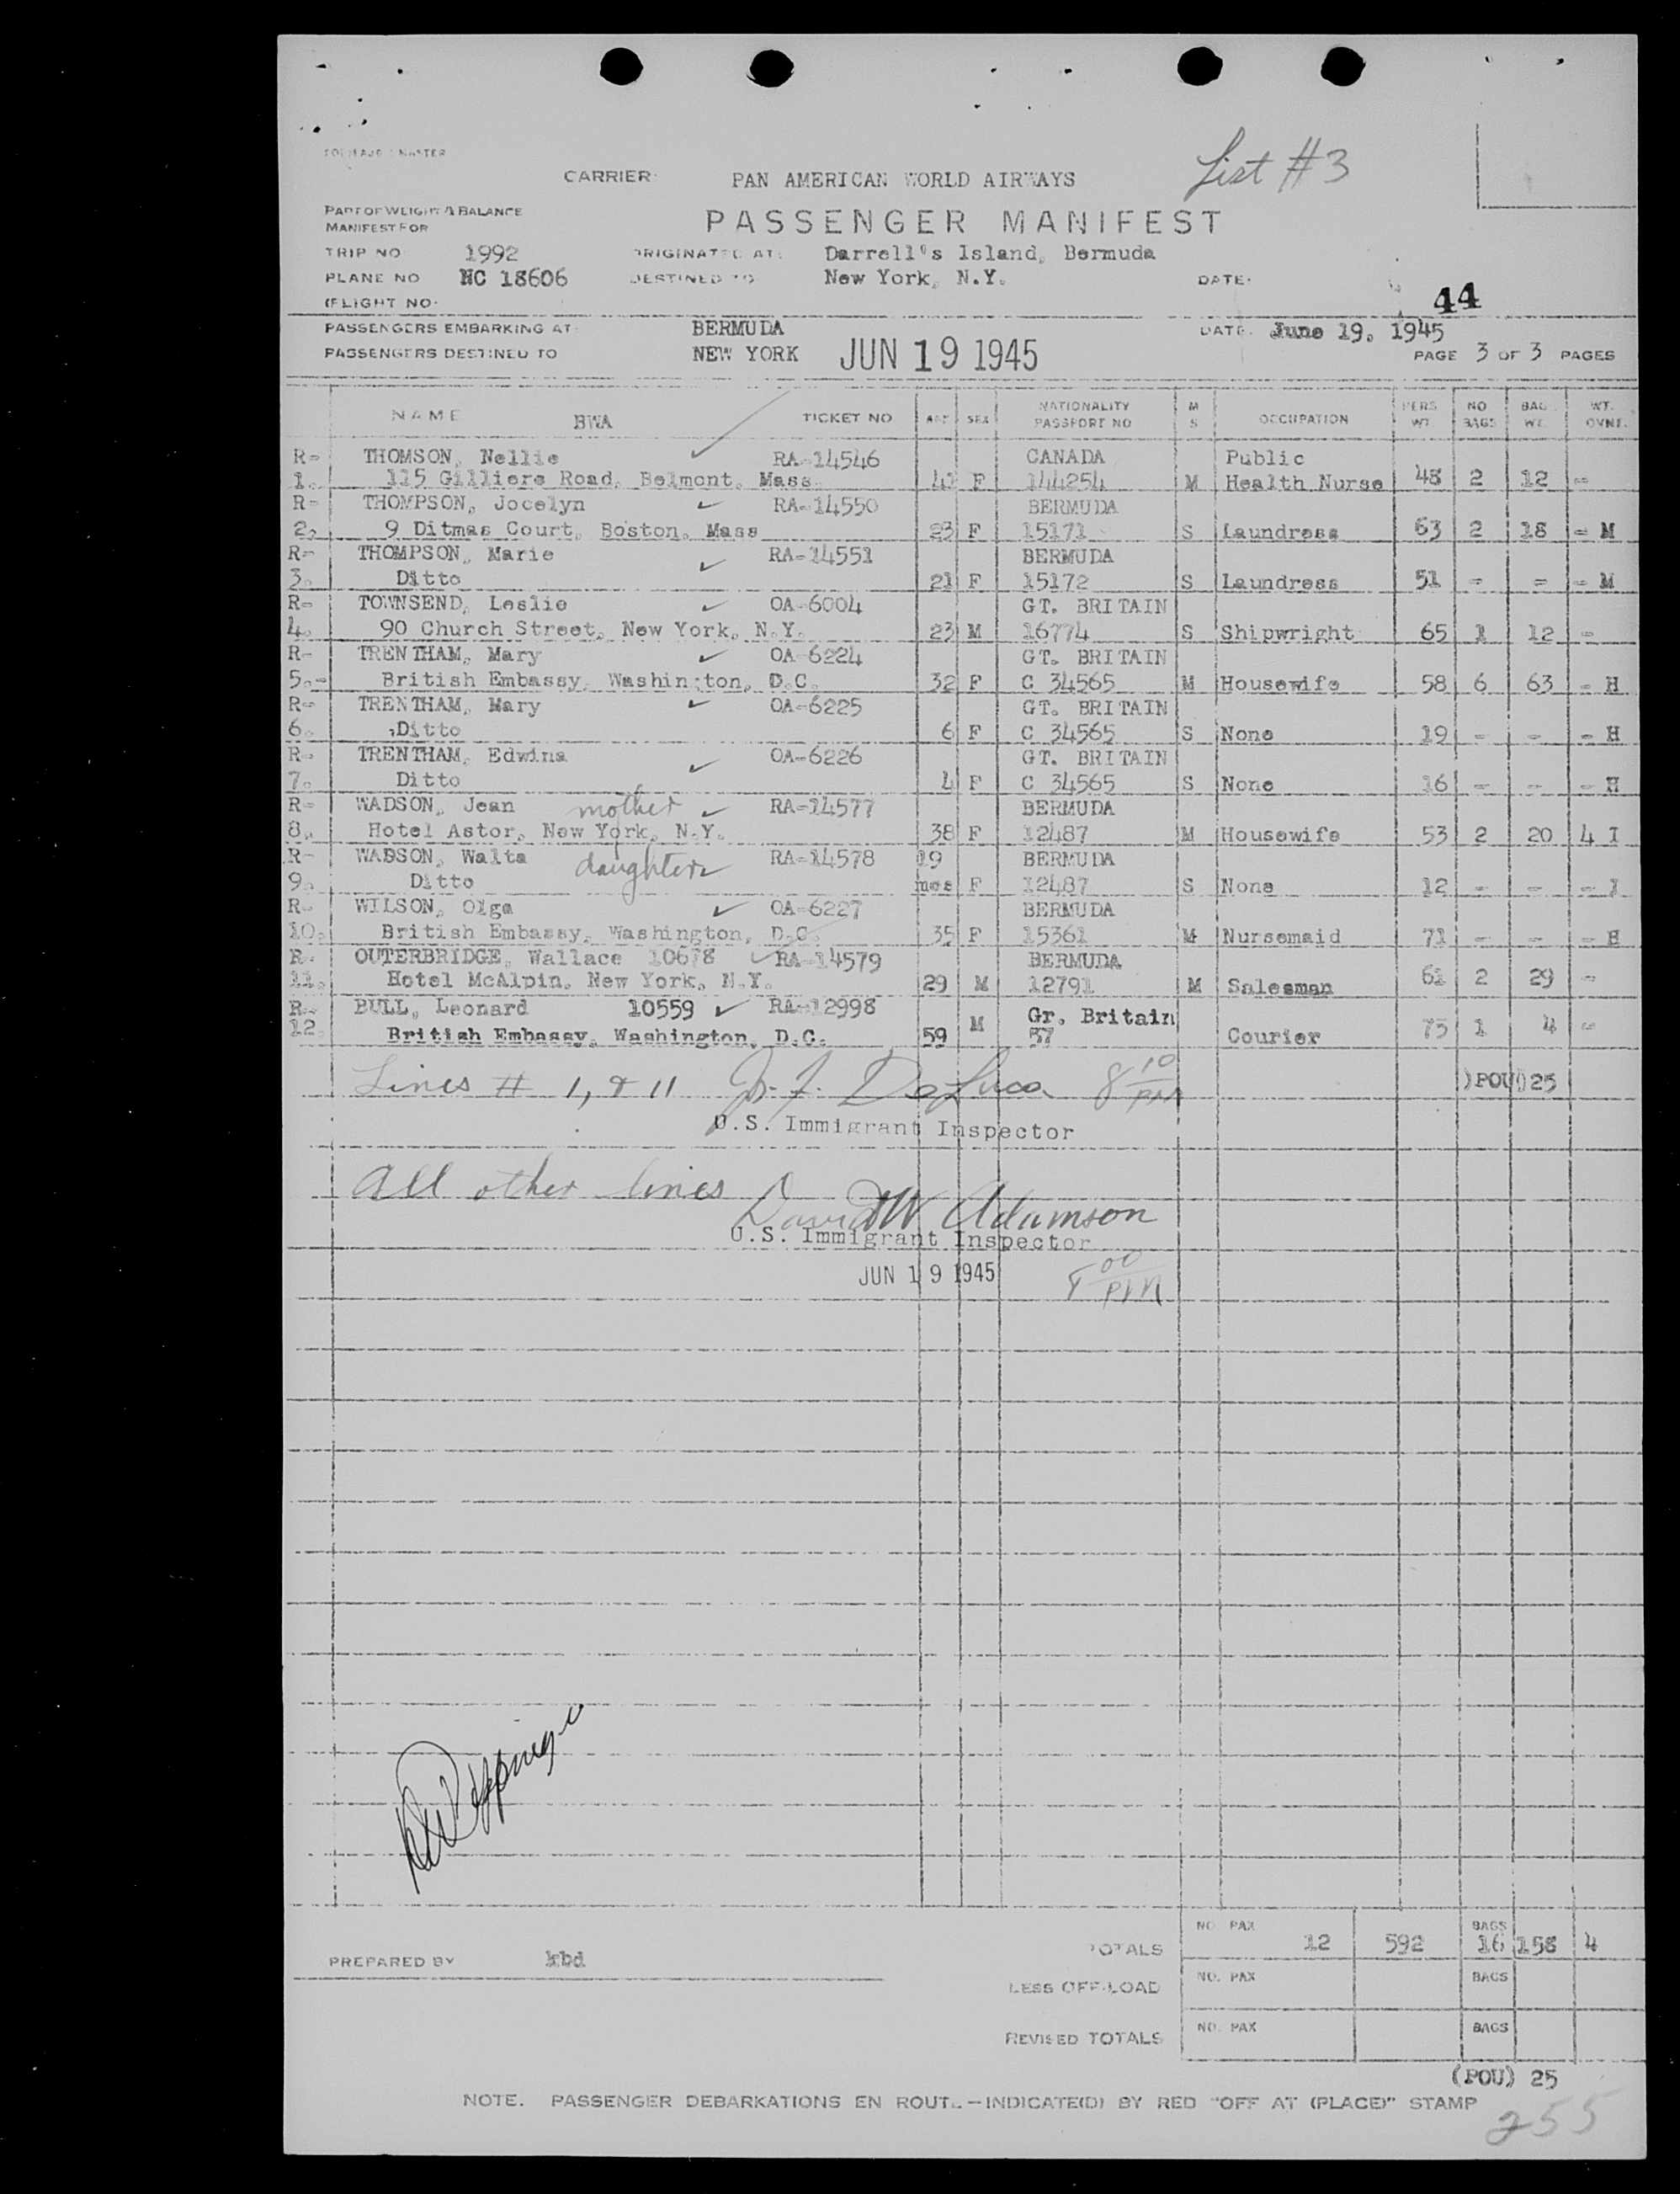 List #3
CARRIER: PAN AMERICAN WORLD AIRWAYS
PART OF WEIGHT & BALANCE
MANIFEST FOR
PASSENGER MANIFEST
TRIP NO 1992 ORIGINATED AT: Darrell's Island, Bermuda
PLANE NO NC 18606 DESTINED TO New York, N.Y. DATE:
(FLIGHT NO. 44
PASSENGERS EMBARKING AT: BERMUDA DATE: June 19, 1945
PASSENGERS DESTINED TO NEW YORK JUN 19 1945 PAGE 3 OF 3 PAGES
NAME BWA TICKET NO AGE SEX NATIONALITY PASSPORT NO M S OCCUPATION PERS WT NO BAGS BAG WT. WT. OVNT.
R- THOMSON, Nellie RA-14546 CANADA Public
1. 115 Gilliers Road, Belmont, Mass. 41 F 144254 M Health Nurse 48 2 12 -
R- THOMPSON, Jocelyn RA-14550 BERMUDA
2. 9 Ditmas Court, Boston, Mass 23 F 15171 S Laundress 63 2 18 - M
R- THOMPSON, Marie RA-14551 BERMUDA
3. Ditto 21 F 15172 S Laundress 51 - - - M
R- TOWNSEND, Leslie OA-6004 GT. BRITAIN
4. 90 Church Street, New York, N.Y. 23 M 16774 S Shipwright 65 1 12 -
R- TRENTHAM, Mary OA-6224 GT. BRITAIN
5.- British Embassy, Washington, D.C. 32 F C 34565 M Housewife 58 6 63 - H
R- TRENTHAM, Mary OA-6225 GT. BRITAIN
6. Ditto 6 F C 34565 S None 19 - - - H
R- TRENTHAM, Edwina OA-6226 GT. BRITAIN
7. Ditto 4 F C 34565 S None 16 - - - H
R- WADSON, Jean mother RA-14577 BERMUDA
8. Hotel Astor, New York, N.Y. 38 F 12487 M Housewife 53 2 20 4 I
R- WADSON, Walta daughter RA-14578 19 BERMUDA
9. Ditto mos F 12487 S None 12 - - - I
R- WILSON, Olga OA-6227 BERMUDA
10. British Embassy, Washington, D.C. 35 F 15361 M Nursemaid 71 - - - H
R- OUTERBRIDGE, Wallace 10678 RA-14579 BERMUDA
11. Hotel McAlpin, New York, N.Y. 29 M 12791 M Salesman 61 2 29 -
R- BULL, Leonard 10559 RA-12998 Gr. Britain
12. British Embassy, Washington, D.C. 59 M 57 Courier 75 1 4 -
Lines # 1, & 11 DeLuca 8 10 PM (POU) 25
U.S. Immigrant Inspector
All other lines David W Adamson
U.S. Immigrant Inspector
JUN 19 1945 8 00 PM
TOTALS NO. PAX 12 592 BAGS 16 158 4
PREPARED BY kbd
LESS OFF-LOAD NO. PAX BAGS
REVISED TOTALS NO. PAX BAGS
(POU) 25
NOTE. PASSENGER DEBARKATIONS EN ROUTE - INDICATE(D) BY RED "OFF AT (PLACE)" STAMP
255